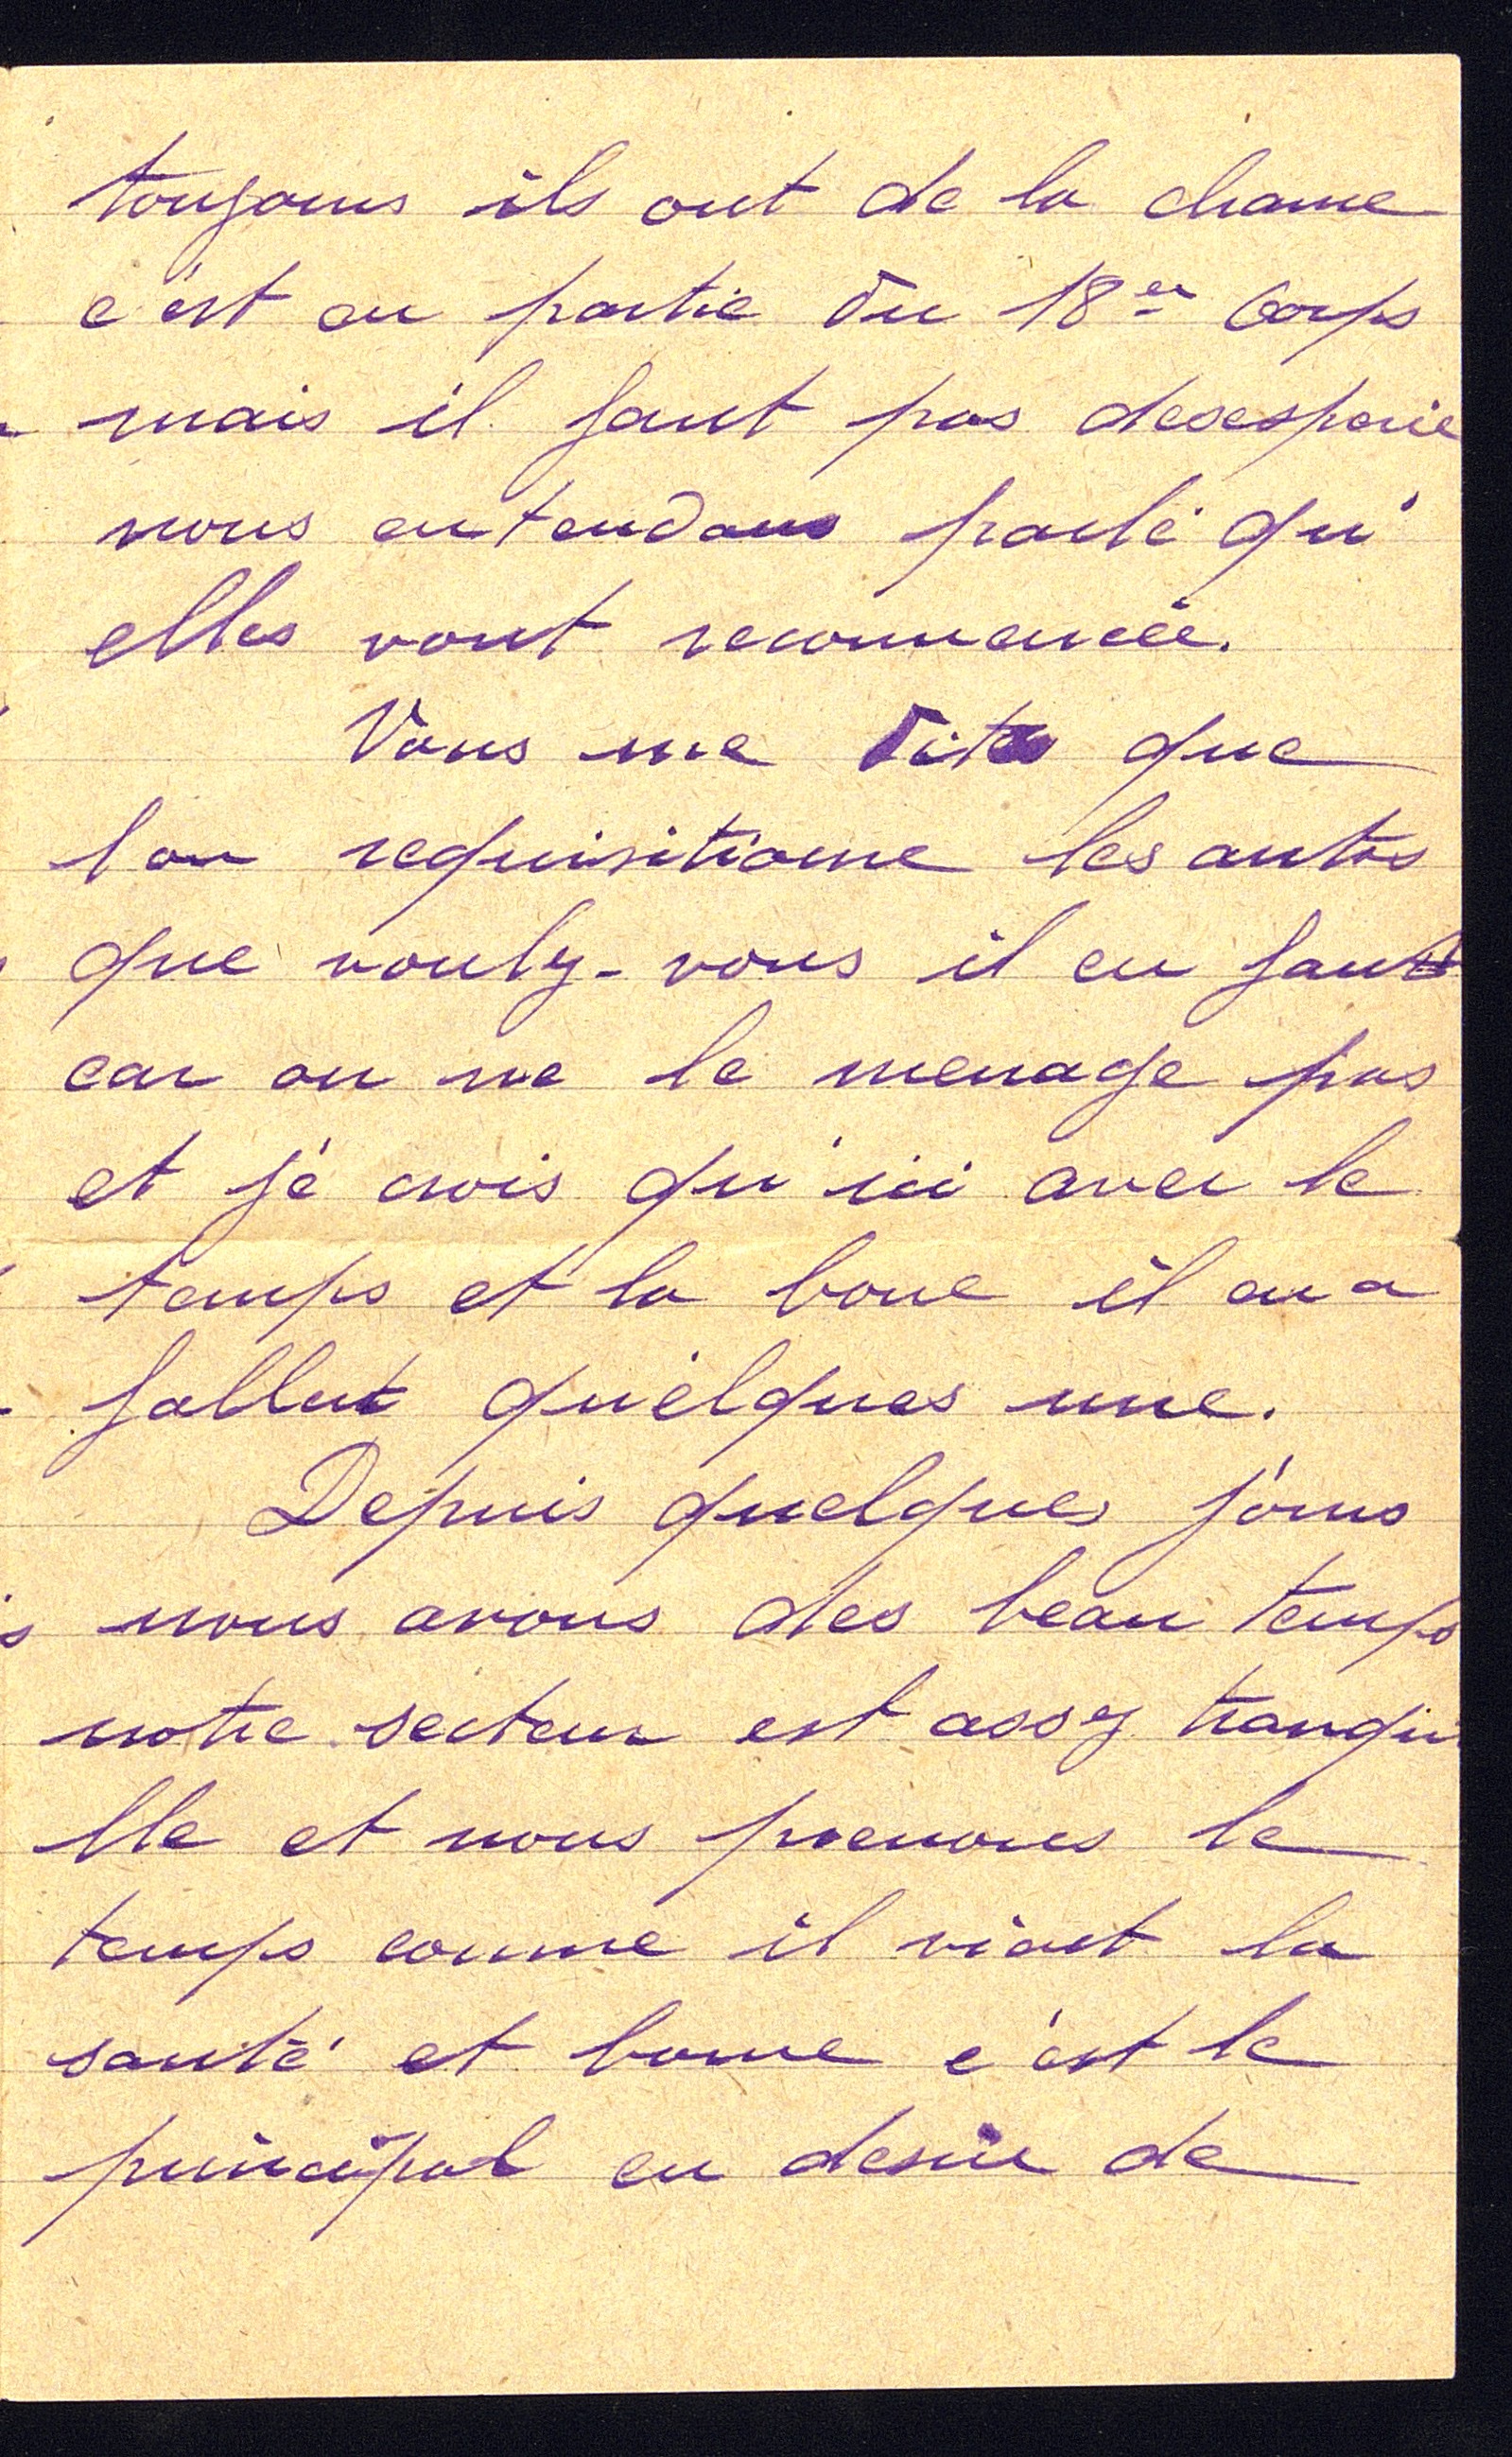 toujours ils ont de la chance
c'est en partie du 18er Corps
mais il faut pas desesperie
nous entendons parlé qu'
elles vont recommencée.
Vous me dites que
lon requisitionne les autos
que vouly-vous il en faut
car on ne le menage pas
et je crois qu'ici avec le
temps et la boue il en a
fallut quelques une.
Depuis quelques jours
nous avons des beau temps
notre secteur est assez tranqui
lle et nous prenons le
temps comme il vient la
santé et bonne c'est le
principal en desir de